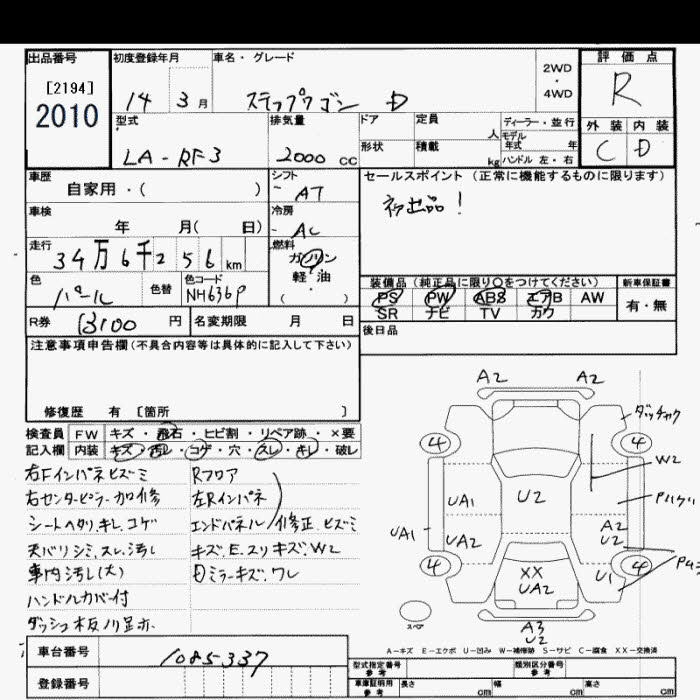 出品番号 初度登録年月 車名・グレード 2WD・4WD 評価点
[2194]
2010
14 3月 ステップワゴン D R
型式 排気量 ドア 定員 人 ディーラー・並行
モデル年式 年
外装 内装
LA-RF3 2000cc 形状 積載 kg ハンドル 左・右 C D
車歴 シフト セールスポイント(正常に機能するものに限ります)
自家用・( ) AT 初出品!
車検 冷房
年 月( 日) AC
走行 燃料
34万6千256km ガソリン
軽・油
( )
色 色替 色コード 装備品(純正品に限り○をつけてください) 新車保証書
パール NH636P PS PW ABS エアB AW 有・無
SR ナビ TV カワ
R券 13100円 名変期限 月 日 後日品
注意事項申告欄(不具合内容等は具体的に記入して下さい)
修復歴 有 [箇所 ]
検査員 FW キズ・飛石・ヒビ割・リペア跡・×要
記入欄 内装 キズ・汚レ・コゲ・穴・スレ・キレ・破レ
右Fインパネヒズミ Rフロア
右センターピラー加修 左Rインパネ
シートヘタリ、キレ、コゲ エンドパネル 修正、ヒズミ
天バリシミ、スレ、汚し キズ、E、スリキズ、W2
車内汚し(大) Dミラーキズ、ワレ
ハンドルカバー付
A2 A2
4 4
W2
UA1 U2
UA1 UA2 A2
U2
4 XX 4
UA2 U1
スペア
A3
U2
A-キズ E-エクボ U-凹み W-補修跡 S-サビ C-腐食 XX-交換済
車台番号 1085337
登録番号
型式指定番号 参考 類別区分番号 参考
車庫証明用 参考 長さ cm 幅 cm 高さ cm